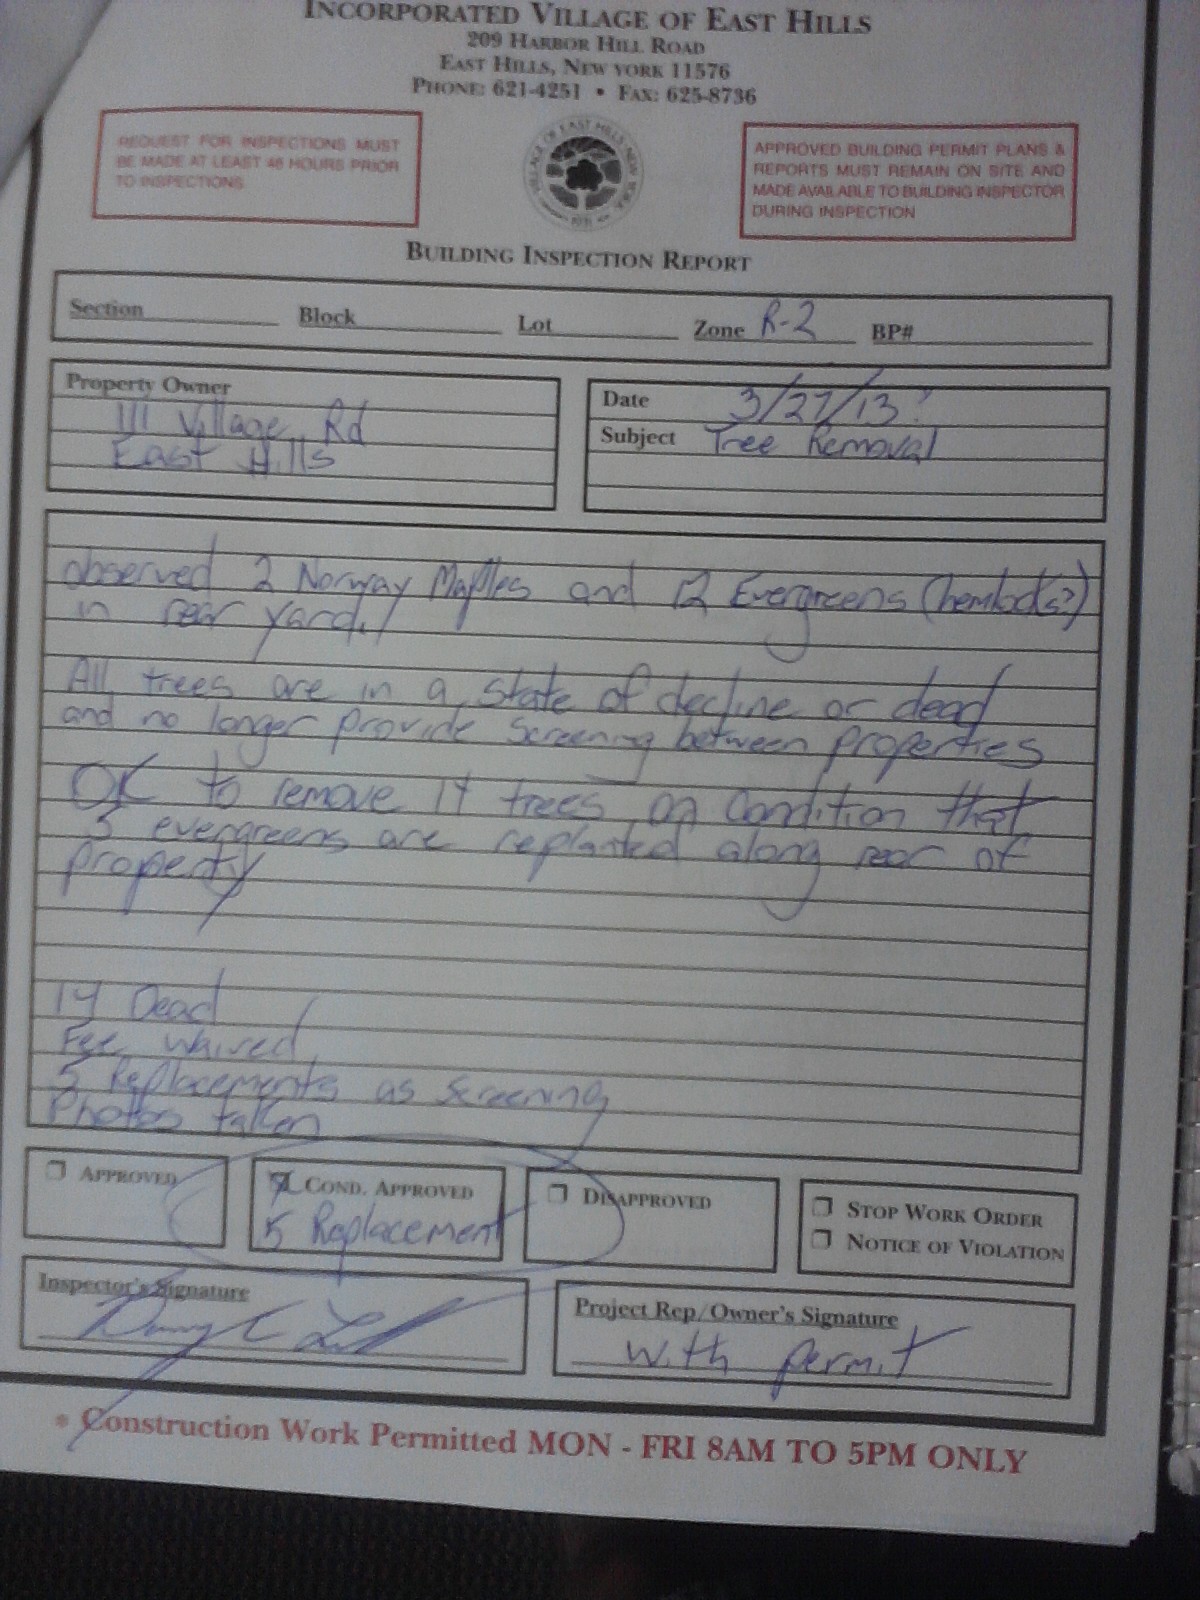 INCORPORATED VILLAGE OF EAST HILLS
209 HARBOR HILL ROAD
EAST HILLS, NEW YORK 11576
PHONE: 621-4251 • FAX: 625-8736
REQUEST FOR INSPECTIONS MUST
BE MADE AT LEAST 48 HOURS PRIOR
TO INSPECTIONS
VILLAGE OF EAST HILLS, NEW YORK
1931
APPROVED BUILDING PERMIT PLANS &
REPORTS MUST REMAIN ON SITE AND
MADE AVAILABLE TO BUILDING INSPECTOR
DURING INSPECTION
BUILDING INSPECTION REPORT
Section Block Lot Zone R-2 BP#
Property Owner
111 Village Rd
East Hills
Date 3/27/13
Subject Tree Removal
observed 2 Norway Maples and 12 Evergreens (hemlocks?)
in rear yard.
All trees are in a state of decline or dead
and no longer provide screening between properties
OK to remove 14 trees on condition that
5 evergreens are replanted along rear of
property
14 Dead
Fee waived
5 Replacements as screening
Photos taken
APPROVED
COND. APPROVED
5 Replacement
DISAPPROVED
STOP WORK ORDER
NOTICE OF VIOLATION
Inspector's Signature
Project Rep/Owner's Signature
with permit
* Construction Work Permitted MON - FRI 8AM TO 5PM ONLY